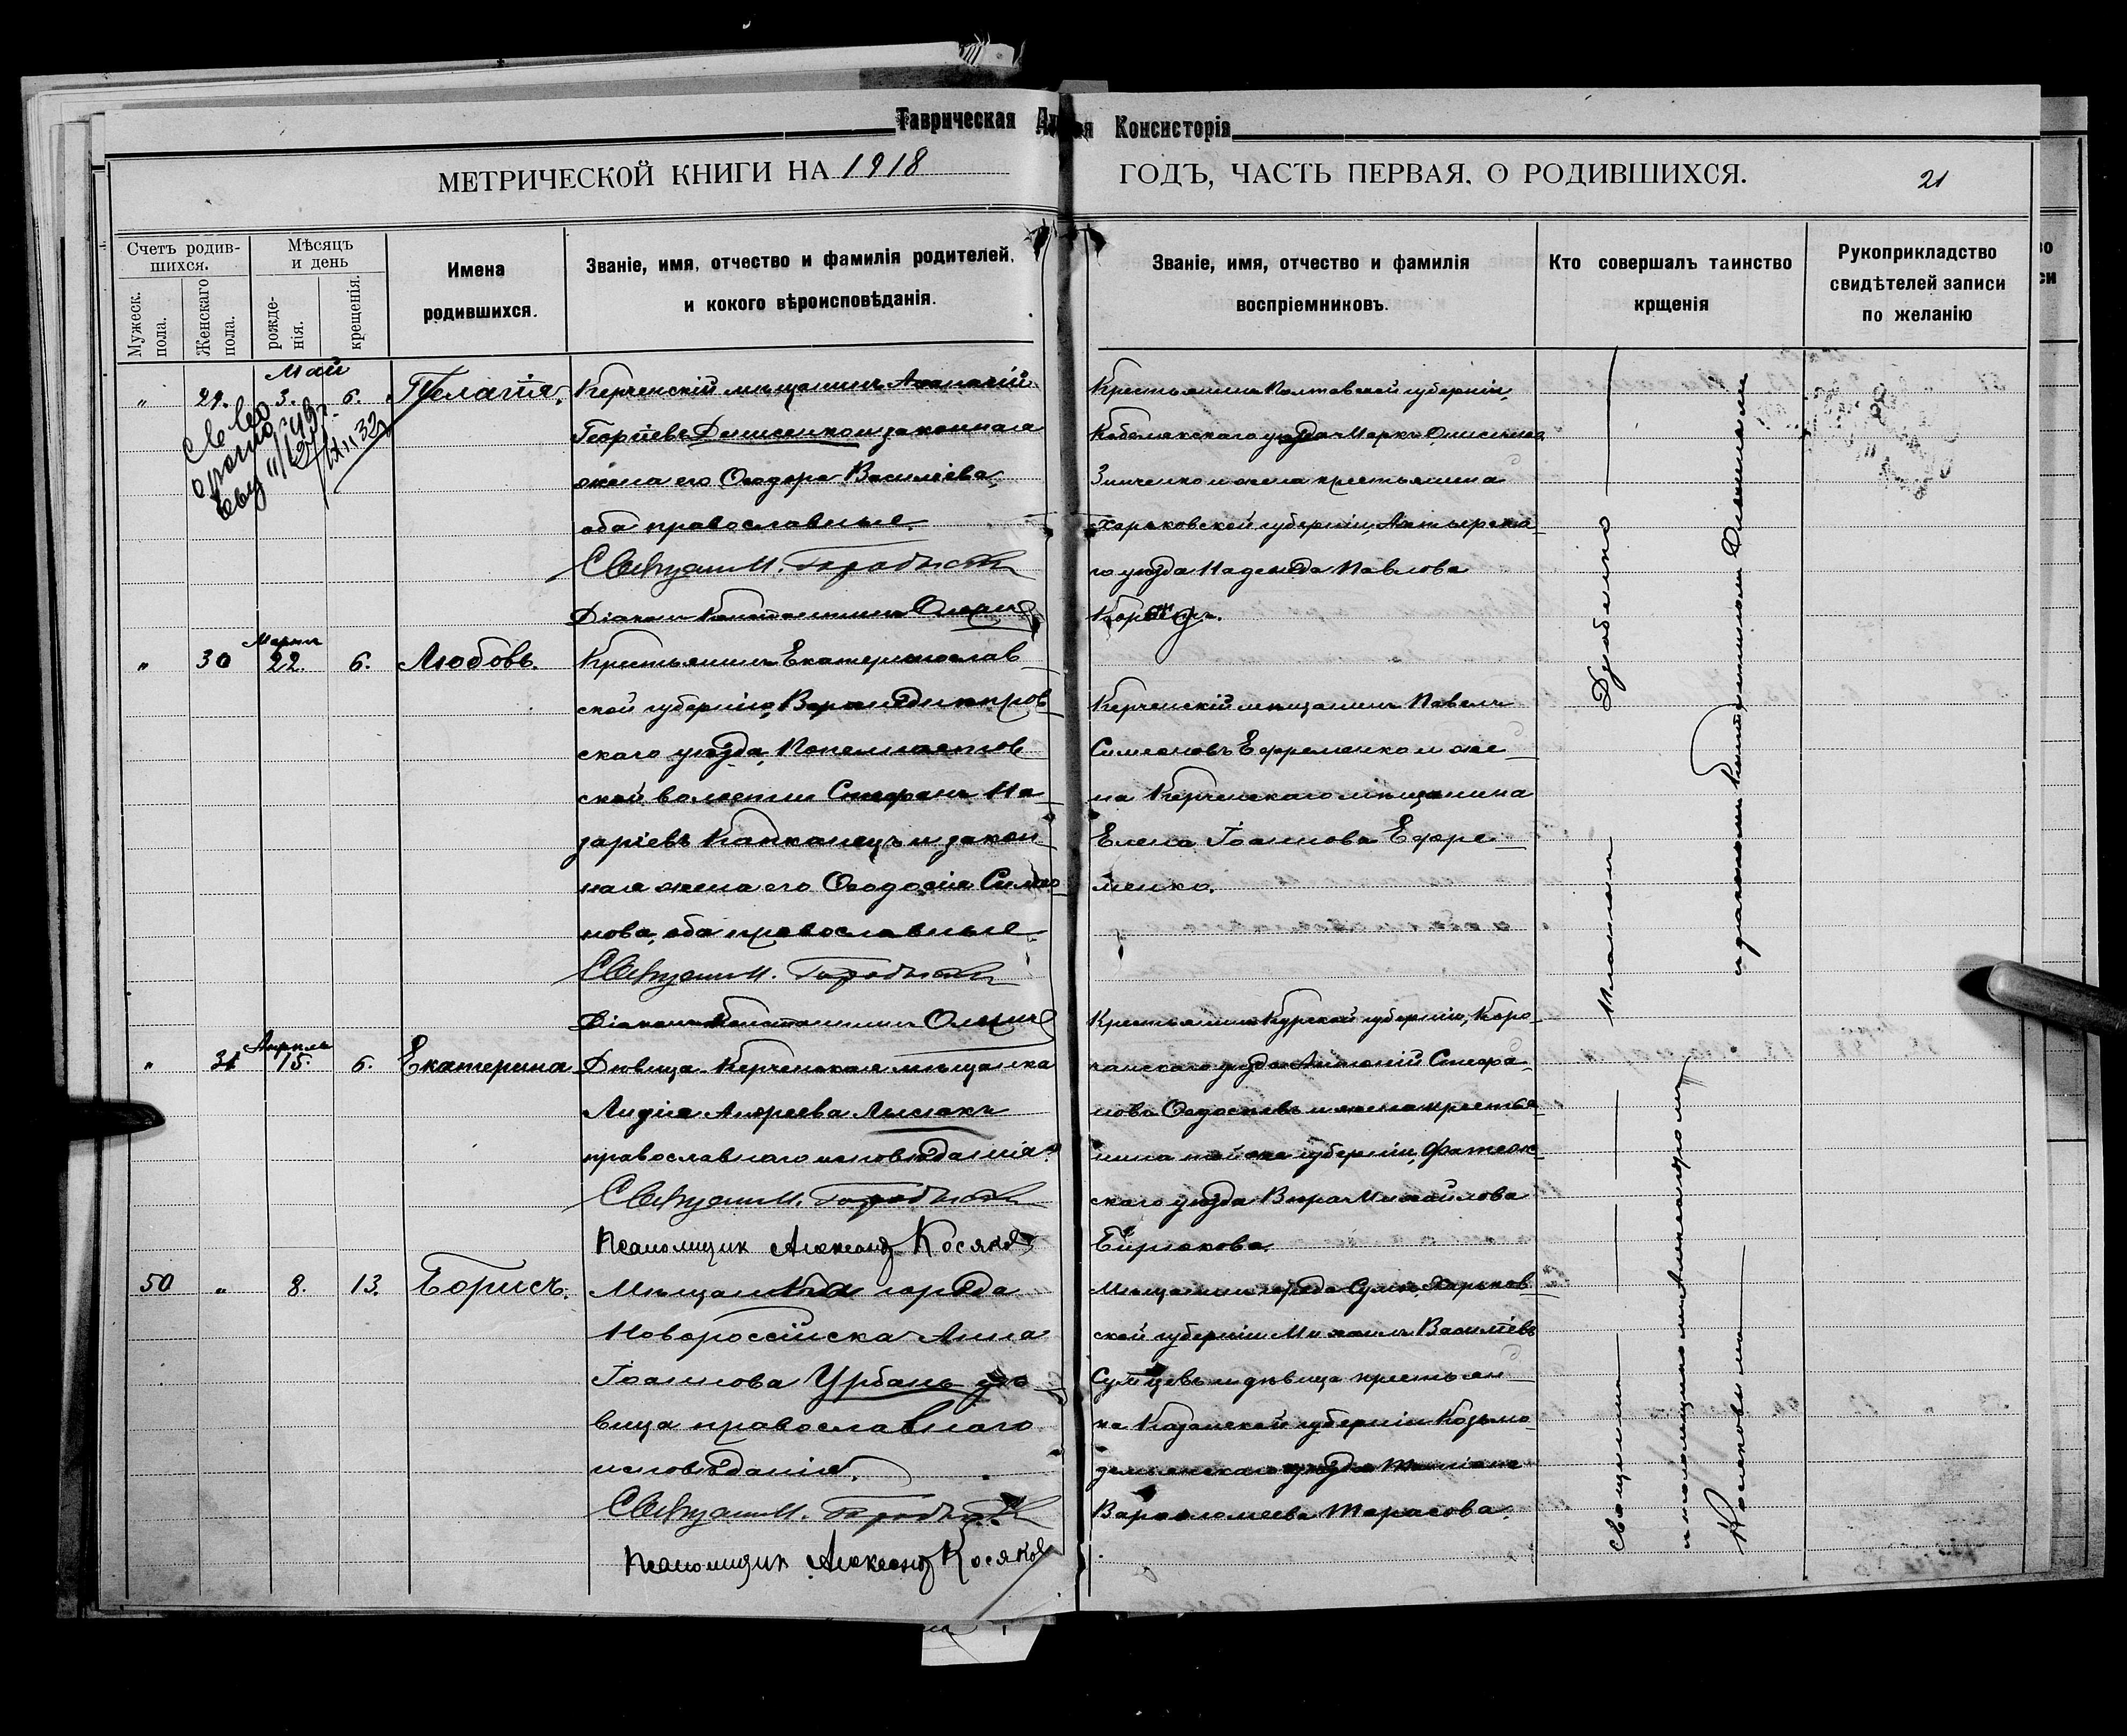 Таврическая
Консисторія
МЕТРИЧЕСКОЙ КНИГИ НА 1918
ГОДЪ, ЧАСТЬ ПЕРВАЯ, О РОДИВШИХСЯ.
21
Счетъ родив-
шихся.
Мужеск.
пола.
Женскаго
пола.
Мѣсяцъ
и день
рожде-
нія.
крещенія.
Имена
родившихся.
Званіе, имя, отчество и фамилія родителей,
и кокого вѣроисповѣданія.
Званіе, имя, отчество и фамилія
воспріемниковъ.
Кто совершалъ таинство
крщенія
Рукоприкладство
свидѣтелей записи
по желанію
Май
" 29. 3. 6. Пелагія.
Керченскій мѣщанинъ Аѳанасій
Георгіевъ Денисенко и законная
жена его Ѳеодора Васильева,
оба православные.
Діаконъ Константинъ
Крестьянинъ Полтавской губерніи,
Кобелякскаго уѣзда Маркъ
Зинченко и жена крестьянина
Харьковской губерніи, Ахтырска-
го уѣзда Надежда Павлова
Мартъ
" 30 22. 6. Любовь.
Крестьянинъ Екатеринослав-
ской губерніи, Верхнеднѣпров-
скаго уѣзда,
ской волости Стефанъ На-
заріевъ и закон-
ная жена его Ѳеодосія Симео-
нова, оба православные.
Діаконъ Константинъ
Керченскій мѣщанинъ Павелъ
Симеоновъ Ефременко и же-
на Керченскаго мѣщанина
Елена Іоаннова Ефре-
менко.
Апрѣль
" 31 15. 6. Екатерина
Дѣвица Керченская мѣщанка
Лидія Андреева Лысакъ
православнаго исповѣданія.
Псаломщик Александръ Косяковъ
Крестьянинъ Курской губерніи, Коро-
чанскаго уѣзда Стефа-
новъ Ѳедосѣевъ и жена крестья-
нина той же губерніи, Фатеж-
скаго уѣзда Вѣра Михайлова
Бирюкова.
50 " 8. 13. Борисъ.
Мѣщанка города
Новороссійска Анна
Іоаннова Урбанъ дѣ-
вица православнаго
исповѣданія.
Псаломщик Александръ Косяков
Мѣщанинъ города Сумъ, Харьков-
ской губерніи Михаилъ Васильевъ
Сумцевъ и дѣвица крестьян-
ка Казанской губерніи Козьмо-
демьянскаго уѣзда Татіана
Варѳоломеева Тарасова.
Священникъ Платонъ
и діакономъ Константиномъ
и псаломщикомъ Александромъ
Косяковымъ